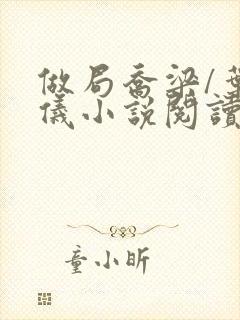 做局喬梁/葉
儀小說閱讀
童小昕